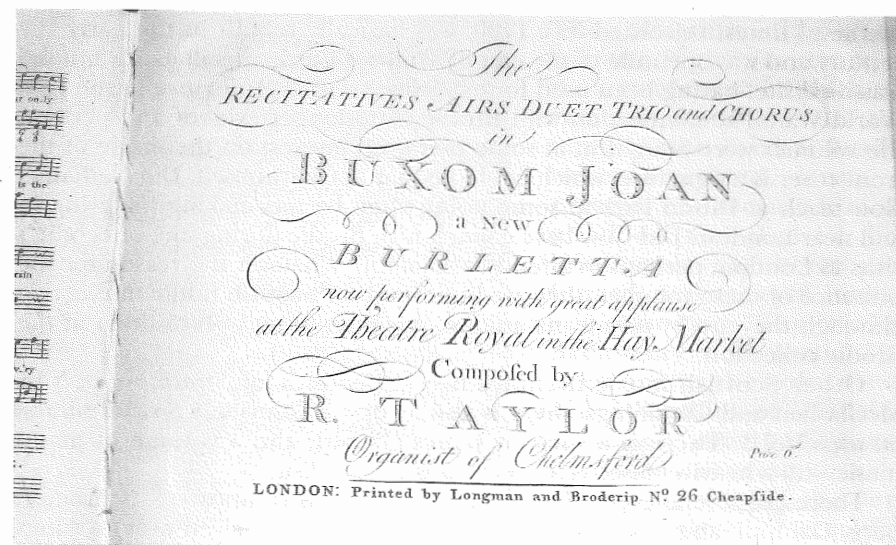 The
RECITATIVES AIRS DUET TRIO and CHORUS
in
BUXOM JOAN
a New
BURLETTA
now performing with great applause
at the Theatre Royal in the Hay Market
Compoſed by
R. TAYLOR
Organist of Chelmsford
Price 6ˢ
LONDON: Printed by Longman and Broderip Nº. 26 Cheapſide.
only
is the
rain
v'ry